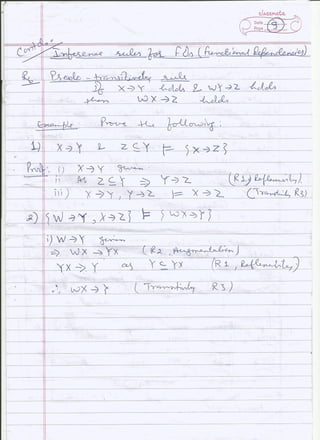 classmate
Date
Page 9
Contd:-
Inference rules for FDs (Functional Dependencies)
R6 Psedo-transitivity rule
If X→Y holds & WY→Z holds
then WX→Z holds
Example Prove the following:
1) X→Y & Z⊆Y ⊨ {X→Z}
Proof: i) X→Y given
ii As Z⊆Y ⇒ Y→Z (R1) Reflexivity)
iii) X→Y, Y→Z ⊨ X→Z (Transitivity R3)
2) {W→Y, X→Z} ⊨ {WX→Y}
i) W→Y given
⇒ WX→YX (R2, Augmentation)
YX→Y as Y⊆YX (R1, Reflexivity)
∴ WX→Y (Transitivity R3)